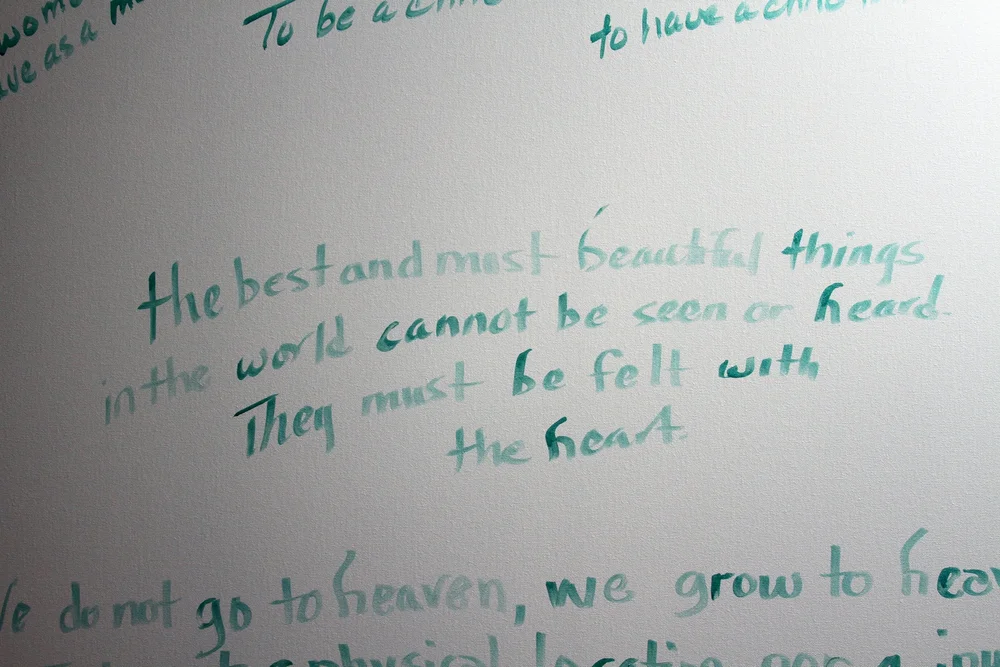 To be a
to have a
as a
the best and must beautiful things
in the world cannot be seen or heard.
They must be felt with
the heart.
do not go to heaven, we grow to
physical